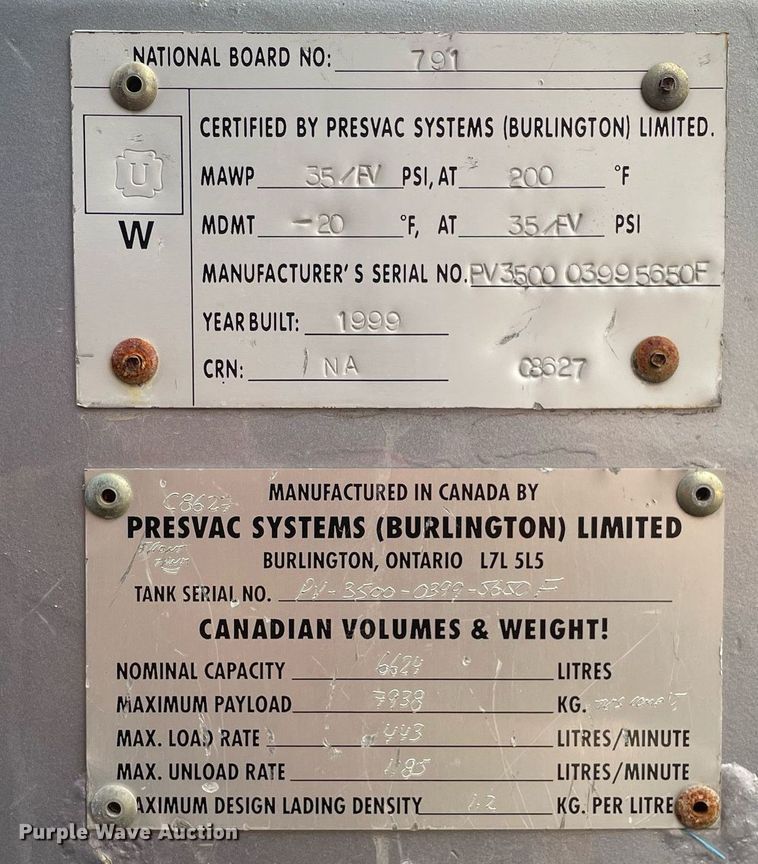 NATIONAL BOARD NO: 791
U
W
CERTIFIED BY PRESVAC SYSTEMS (BURLINGTON) LIMITED.
MAWP 35/FV PSI, AT 200 °F
MDMT -20 °F, AT 35/FV PSI
MANUFACTURER'S SERIAL NO. PV3500 0399 5650F
YEAR BUILT: 1999
CRN: NA C8627
C8627
MANUFACTURED IN CANADA BY
PRESVAC SYSTEMS (BURLINGTON) LIMITED
FRONT
BURLINGTON, ONTARIO L7L 5L5
TANK SERIAL NO. PV-3500-0399-5650F
CANADIAN VOLUMES & WEIGHT!
NOMINAL CAPACITY 6624 LITRES
MAXIMUM PAYLOAD 7938 KG. THIS
MAX. LOAD RATE 443 LITRES/MINUTE
MAX. UNLOAD RATE LITRES/MINUTE
MAXIMUM DESIGN LADING DENSITY 1.2 KG. PER LITRE
Purple Wave Auction